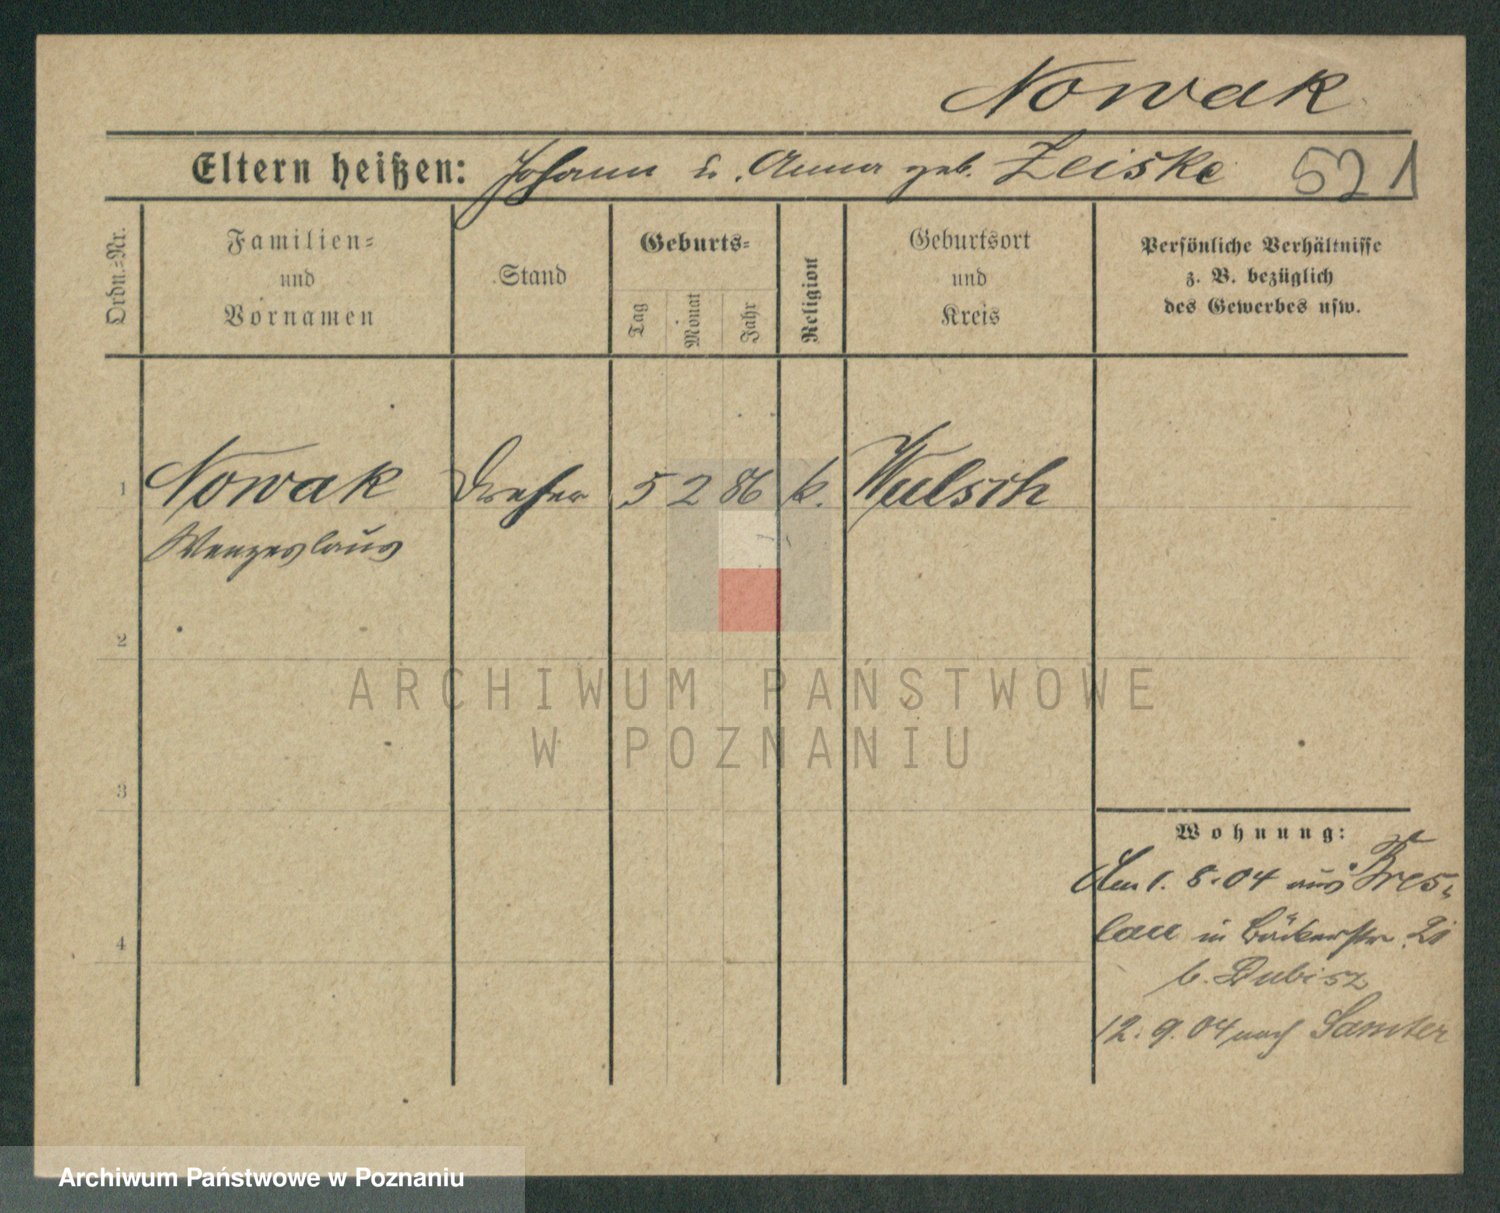 Nowak
Eltern heißen: Johann u. Anna geb. Zeiske 521
Ordn.-Nr.
Familien-
und
Vornamen
Stand
Geburts-
Tag
Monat
Jahr
Religion
Geburtsort
und
Kreis
Persönliche Verhältnisse
z. B. bezüglich
des Gewerbes usw.
1 Nowak Dreher 5 2 86 k. Wulsch
Wenzeslaus
2
3
4
Wohnung:
Am 1. 8. 04 aus Bres-
lau in Bäckerstr. 21
b. Dubisz
12. 9. 04 nach Samter
ARCHIWUM PAŃSTWOWE
W POZNANIU
Archiwum Państwowe w Poznaniu